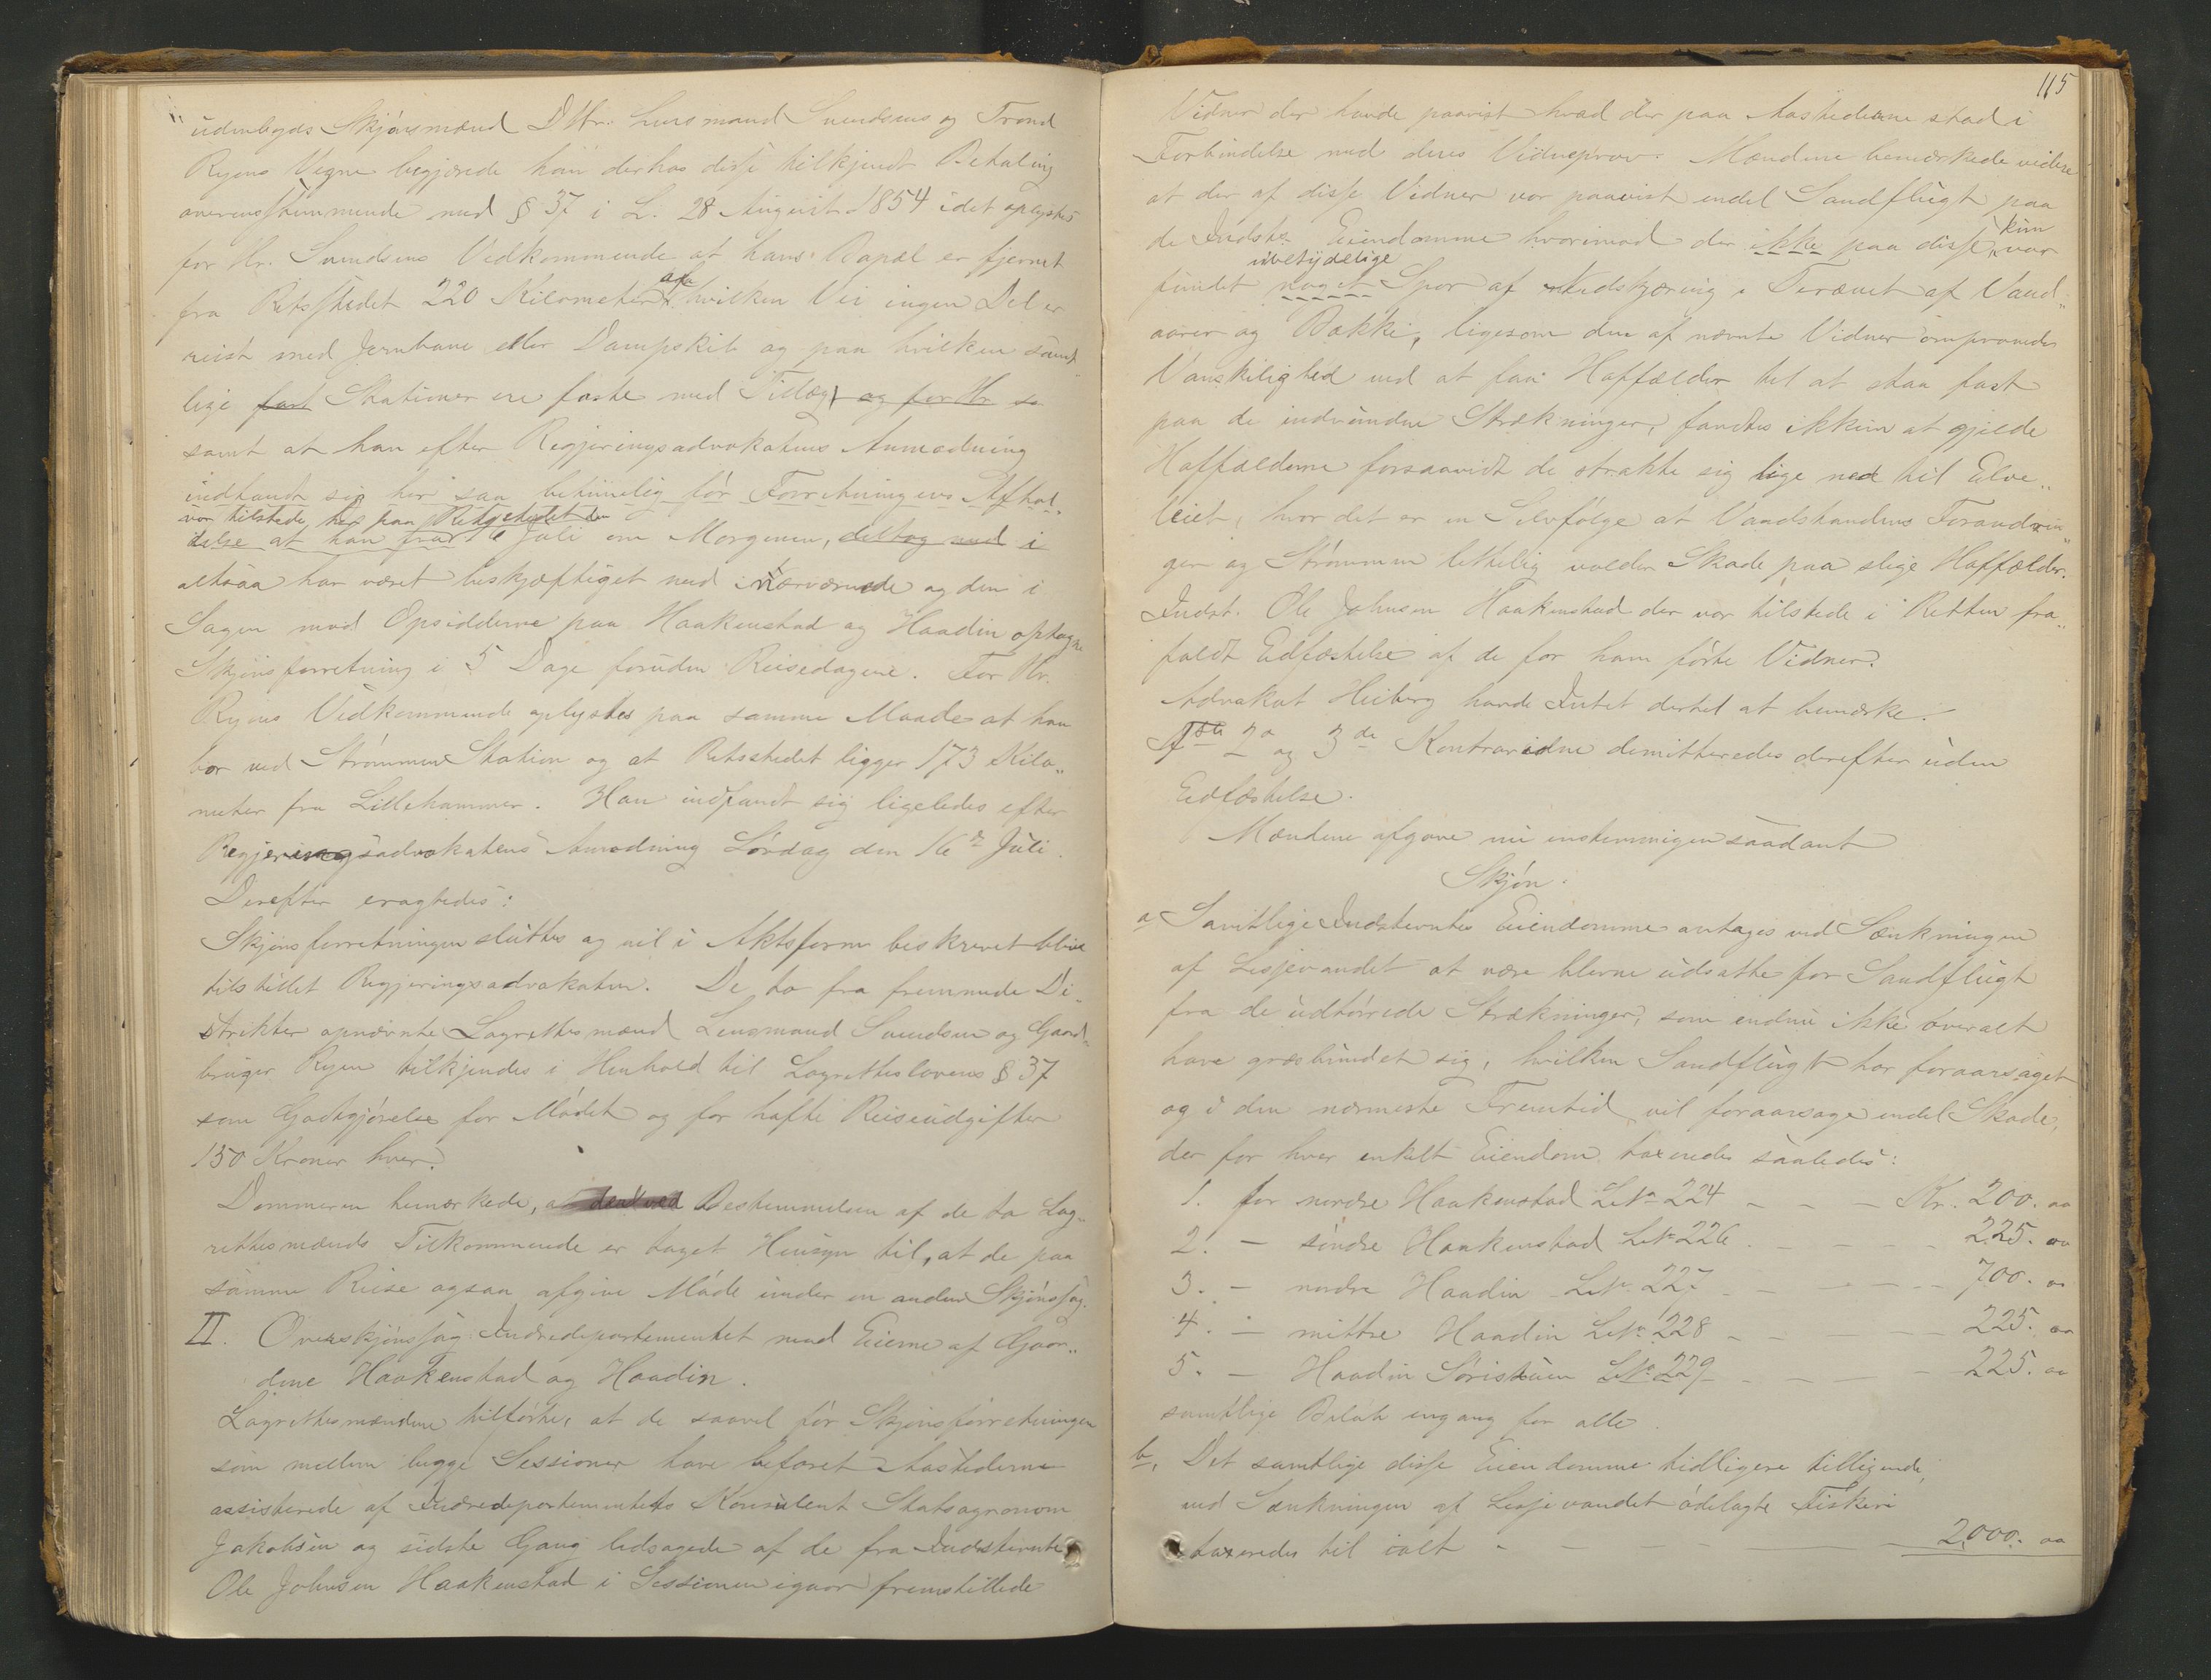 udenbygds Skjønsmænd DHr. Lensmand Svendsens og Trond
Ryens Vegne begjærede han derhos disse tilkjendt Betaling
overensstemmende med § 37 i L. 28 August 1854 idet oplystes
for Hr. Svendsens Vedkommende at hans Bopæl er fjernet
fra Retsstedet 220 Kilometer af hvilken Vei ingen Del er
reist med Jernbane eller Dampskib og paa hvilken samt-
lige fast Stationer ere faste med Tillæg og for Hr. so
samt at han efter Regjeringsadvokatens Anmodning
indfandt sig her saa betimelig før Forretningens Afhol-
var tilstede her paa Retsstedet den
delse at han fra 16 Juli om Morgenen, deltog med i
altsaa har været beskjæftiget med i nærværende og den i
Sagen mod Opsidderne paa Haakenstad og Haadin optagne
Skjønsforretning i 5 Dage foruden Reisedagene. For Hr.
Ryens Vedkommende oplystes paa samme Maade at han
bor ved Strømmen Station og at Retsstedet ligger 173 Kilo-
meter fra Lillehammer. Han indfandt sig ligeledes efter
Regjeringsadvokatens Anmodning Lørdag den 16de Juli.
Derefter eragtedes:
Skjønsforretningen sluttes og vil i Aktsform beskrevet blive
tilstillet Regjeringsadvokaten. De to fra fremmede Di-
strikter opnævnte Lagrettesmænd Lensmand Svendsen og Gaard-
bruger Ryen tilkjendes i Henhold til Lagretteslovens § 37
som Godtgjørelse for Mødet og for hafte Reiseudgifter
150 Kroner hver.
Dommeren bemærkede, at der ved Bestemmelsen af de to Lag-
rettesmænds Tilkommende er taget Hensyn til, at de paa
samme Reise ogsaa afgive Møde under en anden Skjønssag.
II. Overskjønssag: Indredepartementet mod Eierne af Gaar-
dene Haakenstad og Haadin.
Lagrettesmændene tilførte, at de saavel før Skjønsforretningen
som mellem begge Sessioner have befaret Aastederne
assisterede af Indredepartementets Konsulent Statsagronom
Jakobsen og sidste Gang ledsagede af de fra Indstevnte
Ole Johnsen Haakenstad i Sessionen igaar fremstillede
115
Vidner der havde paavist hvad der paa Aastederne stod i
Forbindelse med deres Vidneprov. Mændene bemærkede videre
at der af disse Vidner var paavist endel Sandflugt paa
de Indst. Eiendomme hvorimod der ikke paa disse kun var
ubetydelige
fundet noget Spor af Nedskjæring i Terrænet af Vand-
aarer og Bække, ligesom den af nævnte Vidner omprovede
Vanskelighed ved at faa Hoffælder til at staa fast
paa de indvundne Strækninger, fandtes ikkun at gjelde
Hoffælderne forsaavidt de strakte sig lige ned til Elve-
leiet, hvor det er en Selvfølge at Vandstandens Forandrin-
ger og Strømmen lettelig volder Skade paa slige Hoffælder.
Indst. Ole Johnsen Haakenstad der var tilstede i Retten fra-
faldt Edfæstelse af de for ham førte Vidner.
Advokat Heiberg havde Intet dertil at bemærke.
1ste 2de og 3de Kontravidne demitteredes derefter uden
Edfæstelse.
Mændene afgave nu enstemmigen saadant
Skjøn.
a Samtlige Indstevntes Eiendomme antages ved Sænkningen
af Lesjevandet at være blevne udsatte for Sandflugt
fra de udtørrede Strækninger, som endnu ikke overalt
have græsbundet sig, hvilken Sandflugt har foraarsaget
og i den nærmeste Fremtid vil foraarsage endel Skade,
der for hver enkelt Eiendom taxeredes saaledes:
1. for nordre Haakenstad L№ 224 - - - Kr. 200. oo
2. — søndre Haakenstad L№ 226 - - - - 225. oo
3. — nordre Haadin L№ 227 - - - - 700. oo
4. — mittre Haadin L№ 228 - - - - 225. oo
5. — Haadin Søristuen L№ 229 - - - - 225. oo
samtlige Beløb engang for alle.
b. Det samtlige disse Eiendomme tidligere tilliggende,
ved Sænkningen af Lesjevandet ødelagte Fiskeri
taxeredes til ialt - - - - 2000. oo